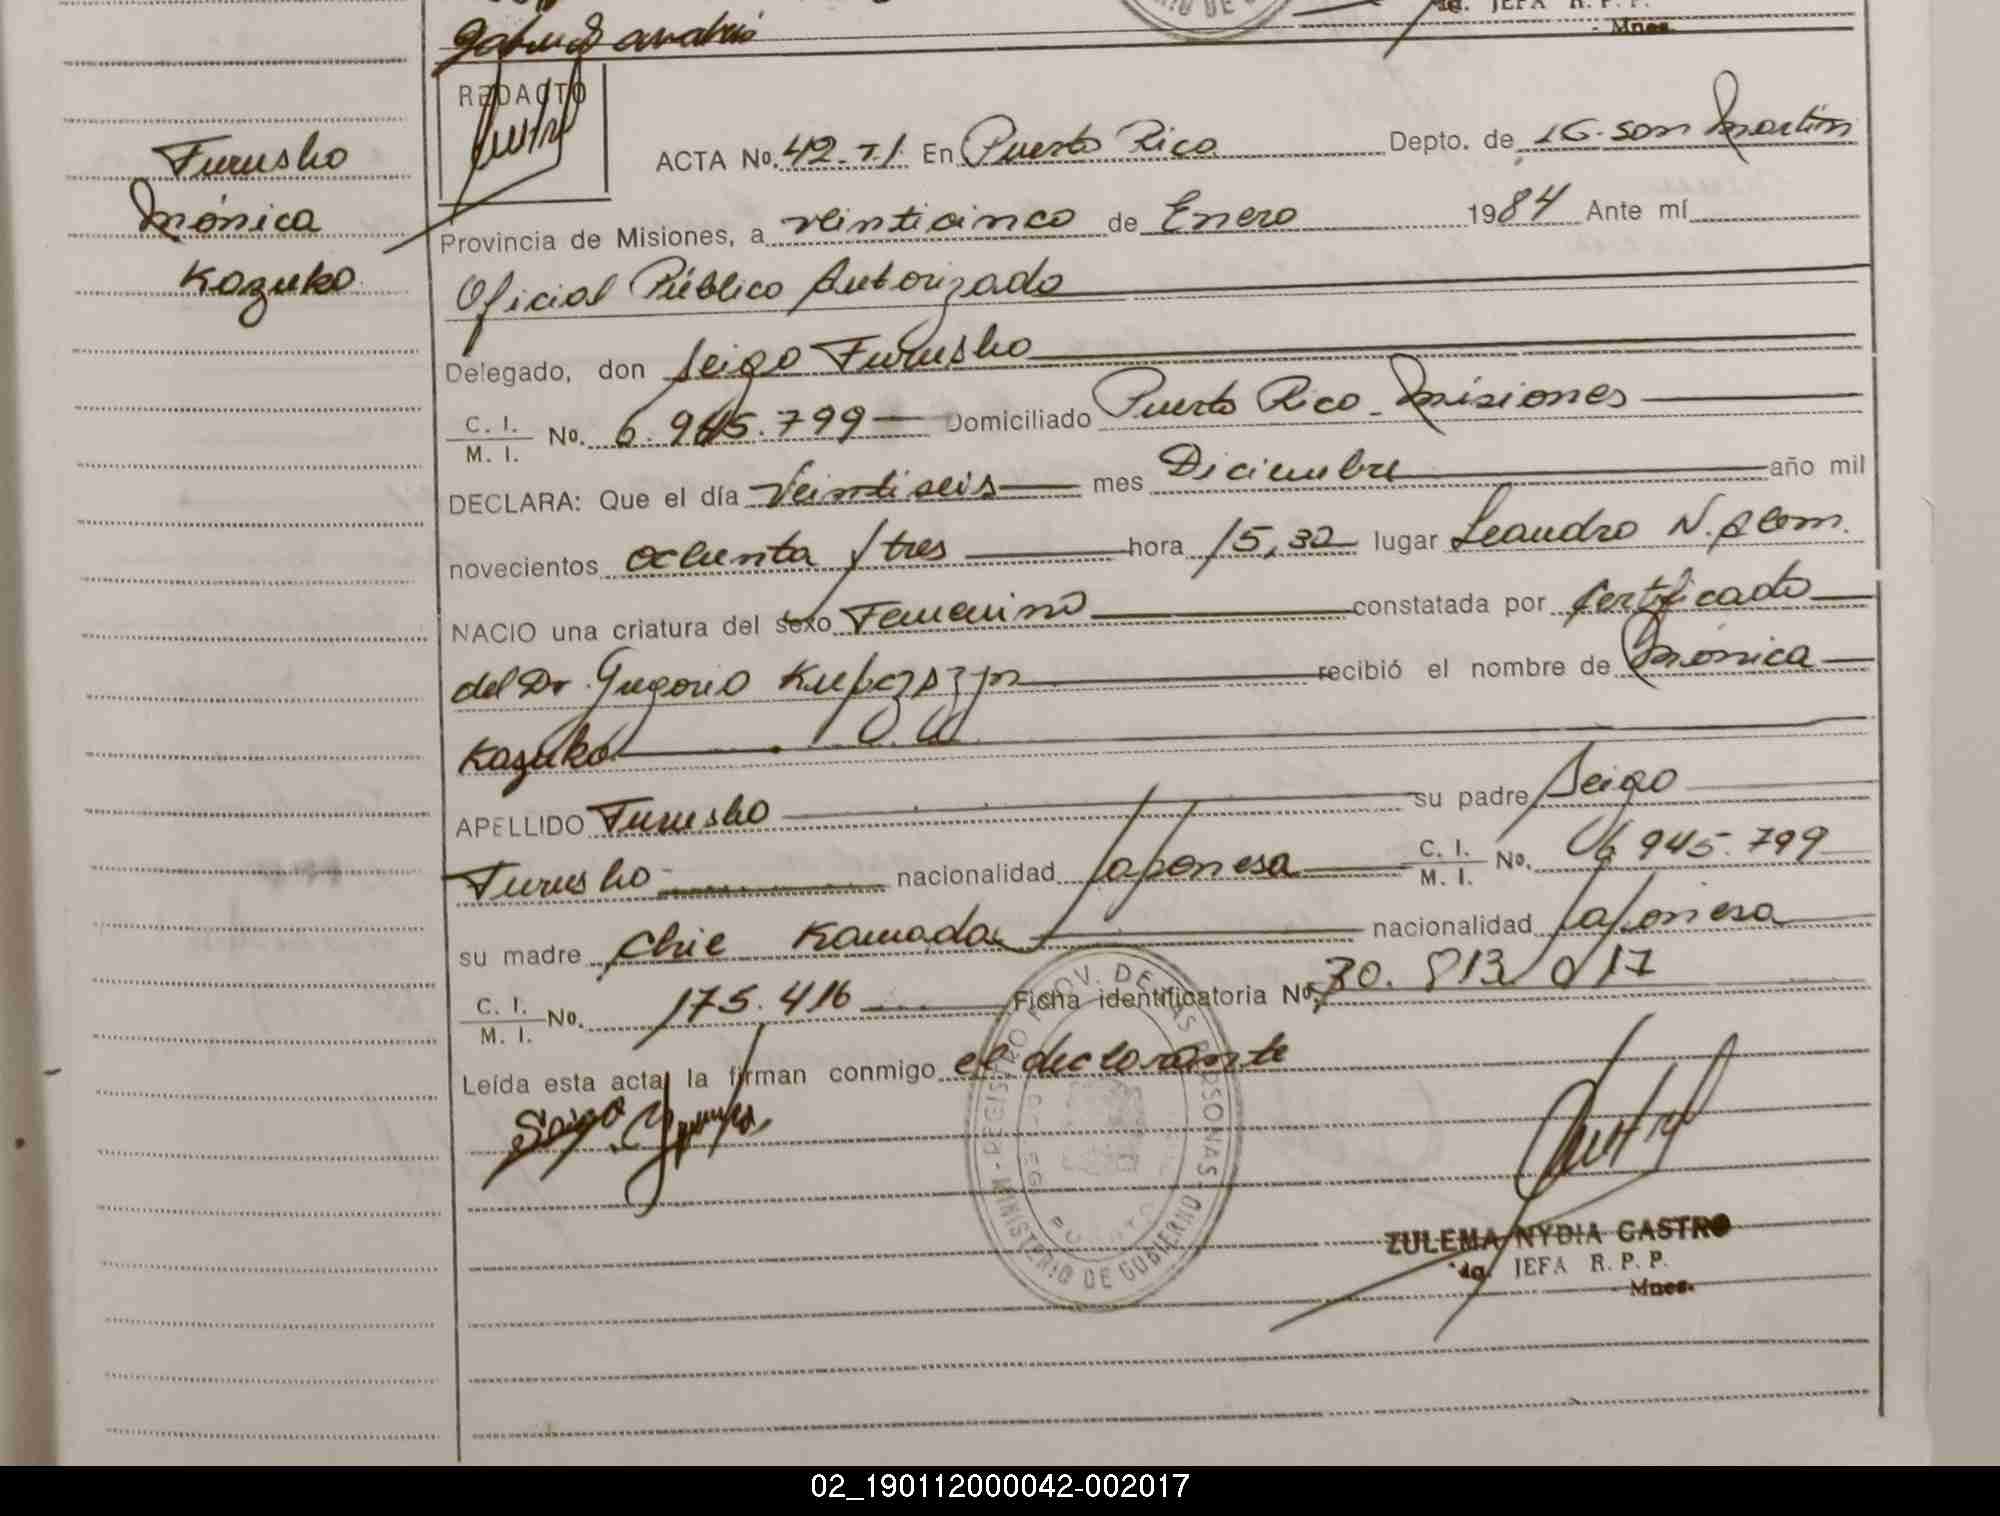 JEFA R. P. P.
Mnes.
REDACTO
Furusho
Mónica
Kazuko
ACTA No. 42-T.I. En Puerto Rico Depto. de LG. San Martín
Provincia de Misiones, a veinticinco de Enero 1984 Ante mí
Oficial Público Autorizado
Delegado, don Seigo Furusho
C. I.
M. I. No. 6.945.799 Domiciliado Puerto Rico - Misiones
DECLARA: Que el día Veintiseis mes Diciembre año mil
novecientos ochenta y tres hora 15,30 lugar Leandro N. Alem.
NACIO una criatura del sexo Femenino constatada por Certificado
del Dr. Gregorio recibió el nombre de Mónica
Kazuko
APELLIDO Furusho su padre Seigo
Furusho nacionalidad Japonesa C. I.
M. I. No. 6.945.799
su madre Chie Kamada nacionalidad Japonesa
C. I.
M. I. No. 175.416 Ficha identificatoria No. 30.813.017
Leída esta acta, la firman conmigo el declarante
REGISTRO PROV. DE LAS PERSONAS - MINISTERIO DE GOBIERNO -
ZULEMA NYDIA CASTRO
JEFA R. P. P.
Mnes.
02_190112000042-002017